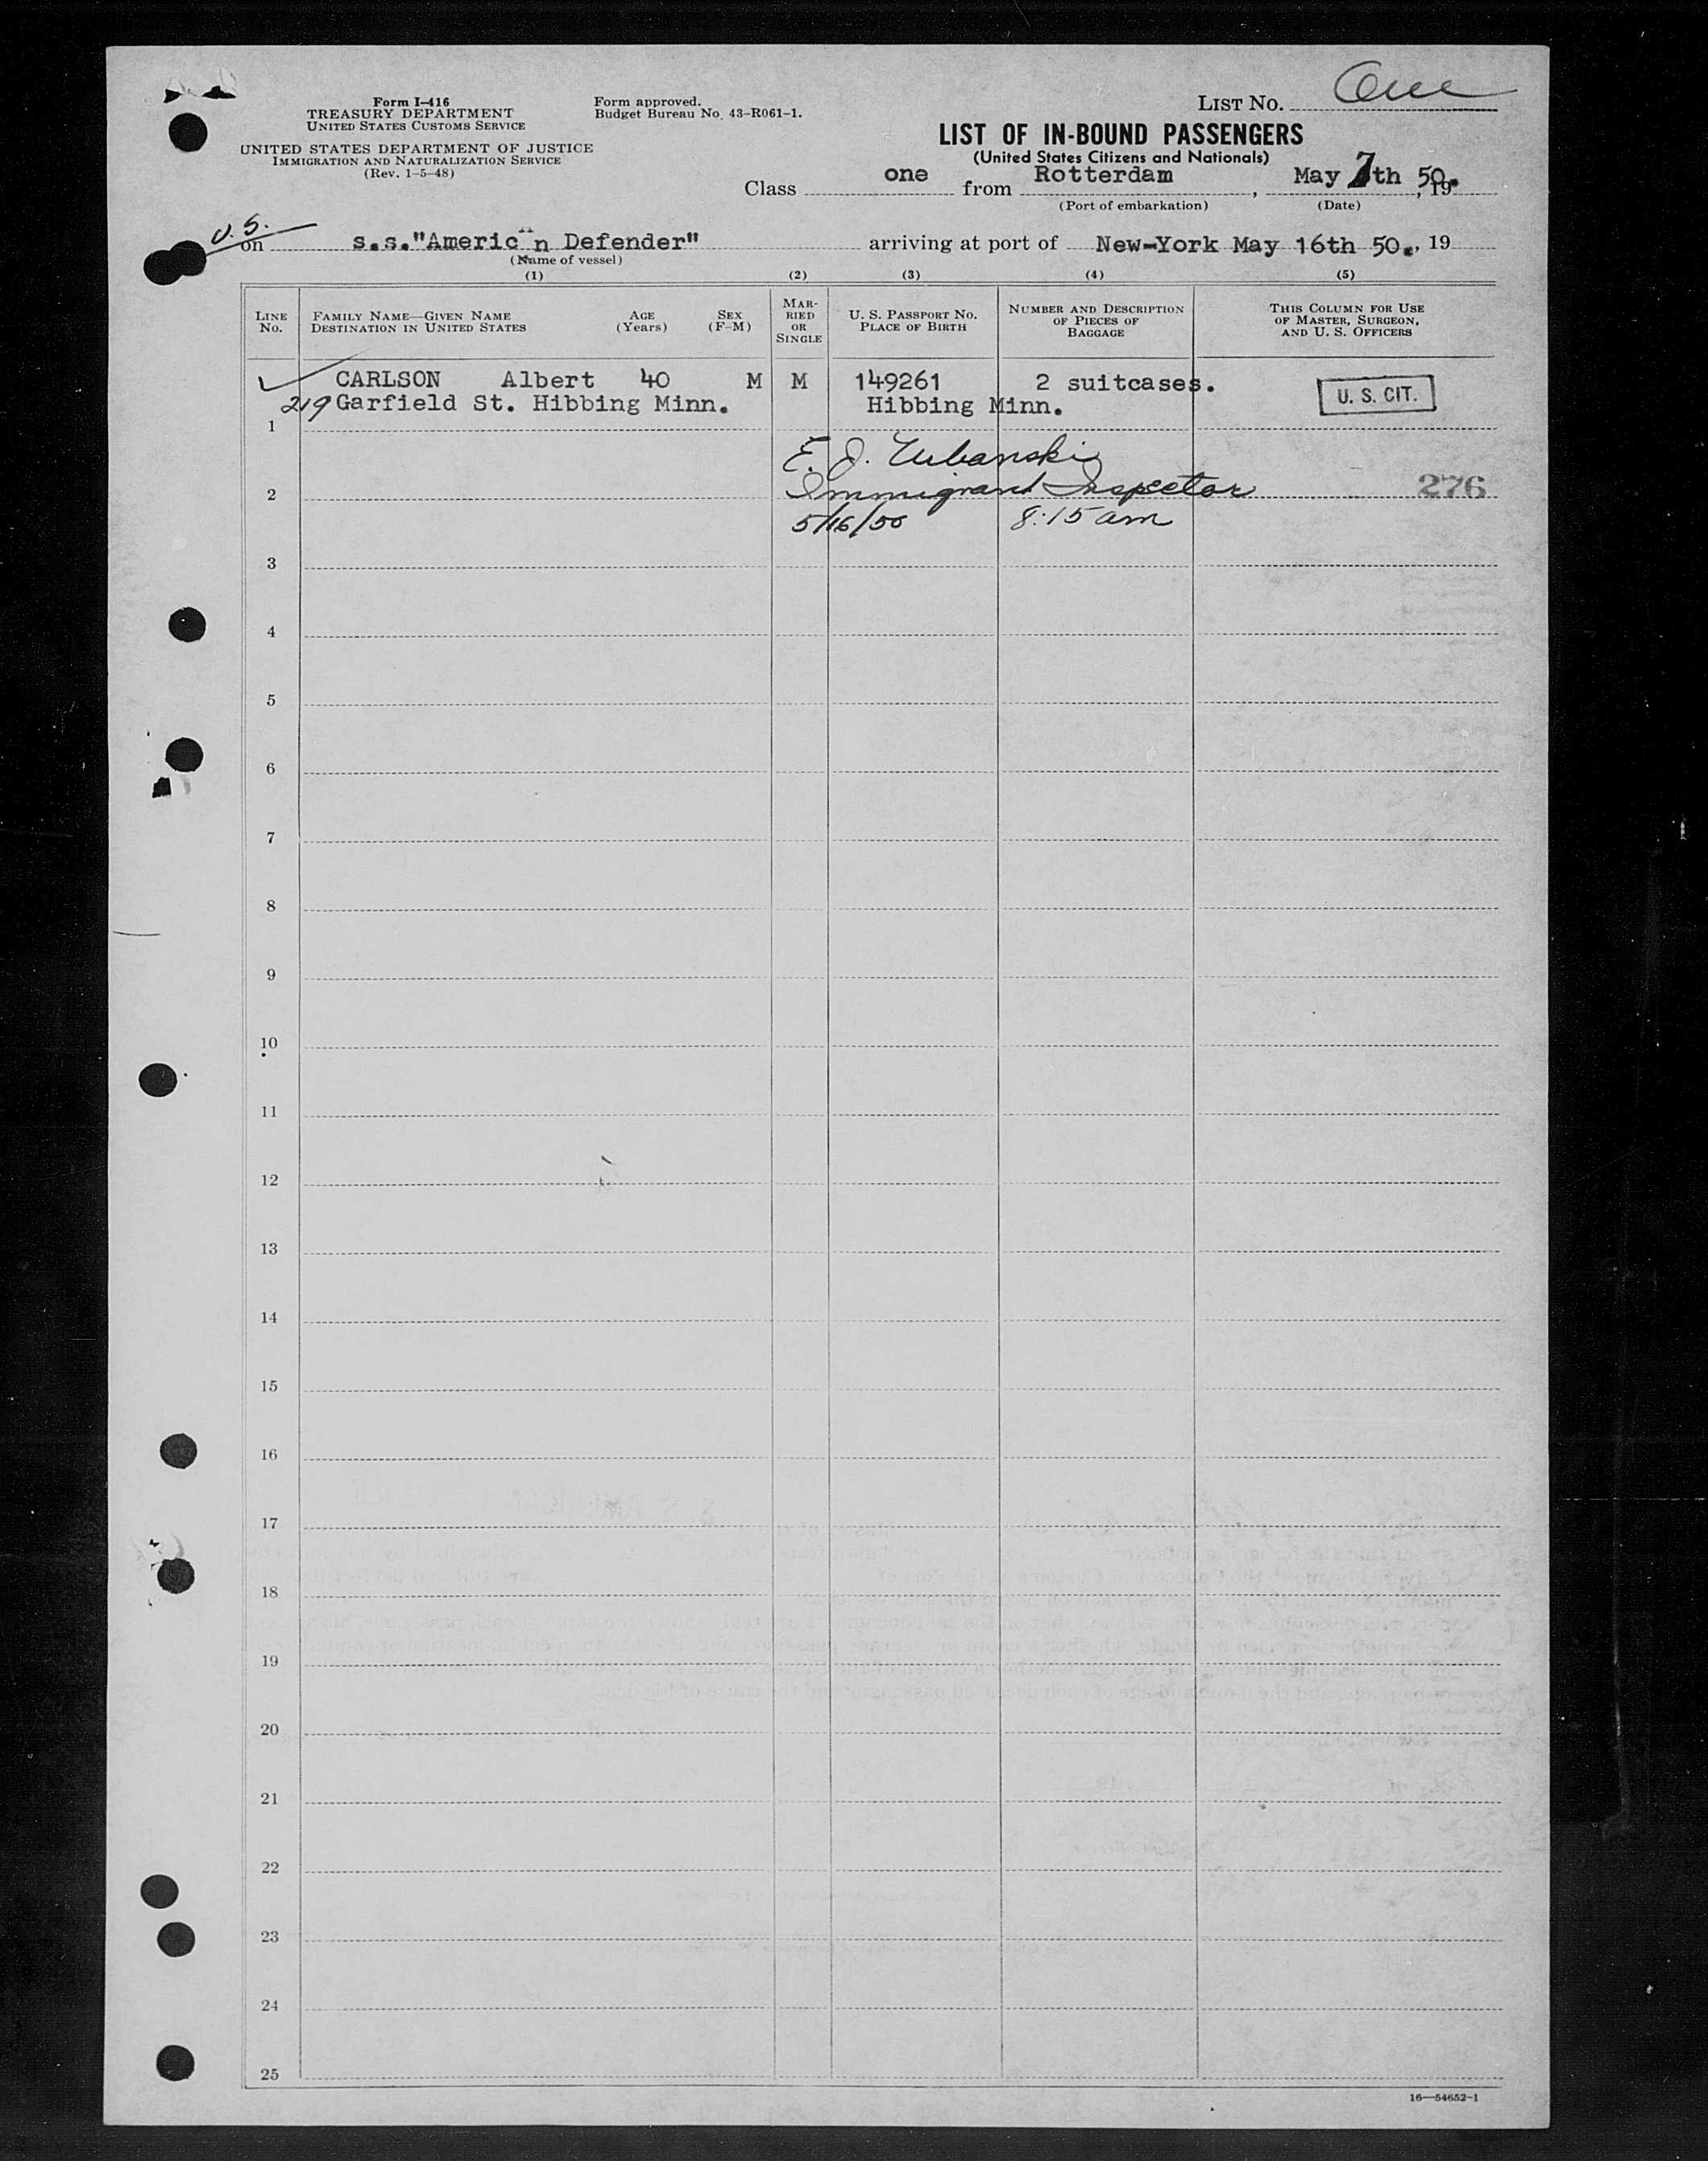 LIST No. One
Form I-416
TREASURY DEPARTMENT
UNITED STATES CUSTOMS SERVICE
UNITED STATES DEPARTMENT OF JUSTICE
IMMIGRATION AND NATURALIZATION SERVICE
(Rev. 1-5-48)
Form approved.
Budget Bureau No. 43-R061-1.
LIST OF IN-BOUND PASSENGERS
(United States Citizens and Nationals)
Class one from Rotterdam, May 7th 50., 19
(Port of embarkation) (Date)
U.S.
on s.s."Americ n Defender" arriving at port of New-York May 16th 50., 19
(Name of vessel)
(1) (2) (3) (4) (5)
LINE No. FAMILY NAME—GIVEN NAME DESTINATION IN UNITED STATES AGE (Years) SEX (F-M) MARRIED OR SINGLE U. S. PASSPORT No. PLACE OF BIRTH NUMBER AND DESCRIPTION OF PIECES OF BAGGAGE THIS COLUMN FOR USE OF MASTER, SURGEON, AND U. S. OFFICERS
CARLSON Albert 40 M M 149261 2 suitcases. U. S. CIT.
219 Garfield St. Hibbing Minn. Hibbing Minn.
1
E. J. Urbanski
2 Immigrant Inspector 276
5/16/50 8:15 am
3
4
5
6
7
8
9
10
11
12
13
14
15
16
17
18
19
20
21
22
23
24
25
16—54652-1